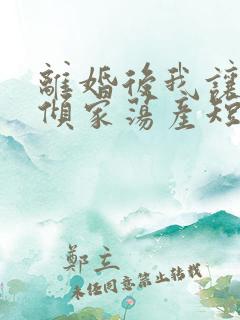 離婚後我讓
傾家蕩産短
鄭立
未经同意禁止转载